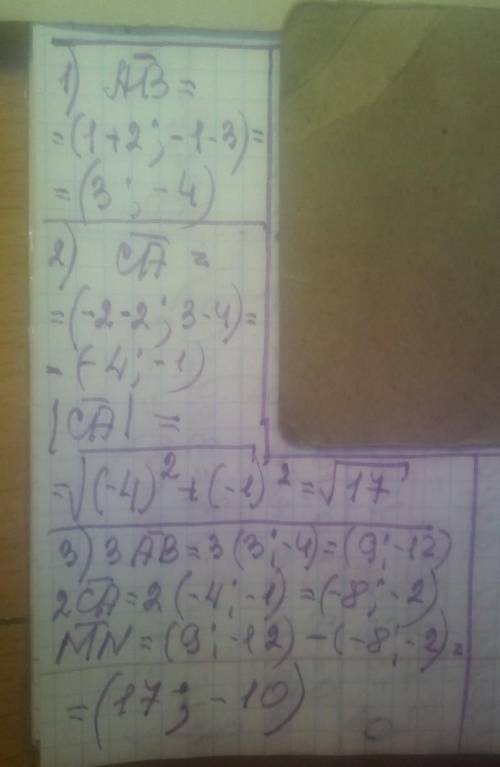 1) AB =
= (1+2; -1-3) =
= (3; -4)
2) CA =
= (-2-2; 3-4) =
= (-4; -1)
|CA| =
= √(-4)² + (-1)² = √17
3) 3AB = 3(3; -4) = (9; -12)
2CA = 2(-4; -1) = (-8; -2)
MN = (9; -12) - (-8; -2) =
= (17; -10)